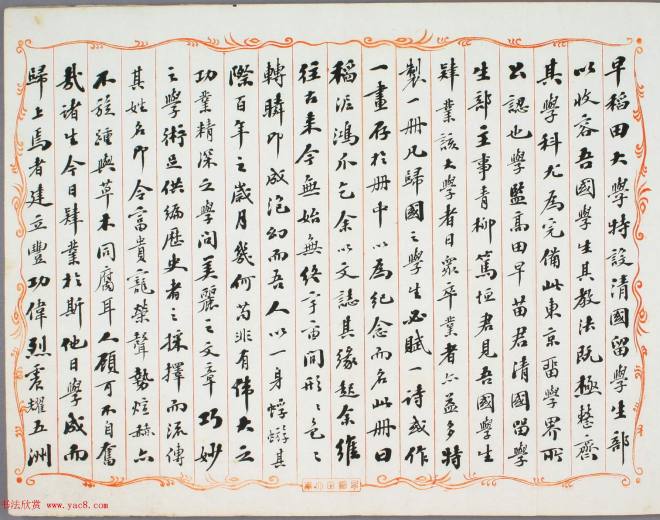 早稻田大學特設清國留學生部
以收容吾國學生其教法既極整齊
其學科尤爲完備此東京留學界所
公認也學監高田早苗君清國留學
生部主事青柳篤恒君見吾國學生
肄業該大學者日衆卒業者亦益多特
製一冊凡歸國之學生必賦一詩或作
一畫存於冊中以爲紀念而名此冊曰
稻泥鴻爪乞余以文誌其緣起余維
往古來今無始無終宇宙間形形色色
轉瞬即成泡幻而吾人以一身蜉蝣其
際百年之歲月幾何苟非有偉大之
功業精深之學問美麗之文章巧妙
之學術足供編歷史者之採擇而流傳
其姓名即令富貴寵榮聲勢煊赫亦
不旋踵與草木同腐耳人顧可不自奮
哉諸生今日肄業於斯他日學成而
歸上焉者建立豐功偉烈震耀五洲
书法欣赏 www.yac8.com